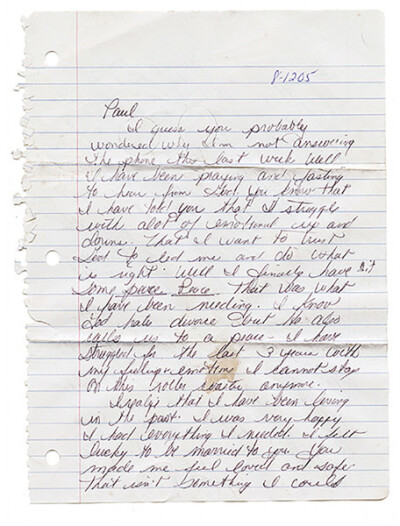 8-1-205
Paul
I guess you probably
wondered why I'm not answering
the phone this last week well
I have been praying and fasting
to hear from God you know that
I have told you that I struggle
with alot of emotional up and
downs. That I want to trust
God to lead me and do what
is right. Well I finally have
some peace Peace that was what
I have been needing. I know
God hate divorce but he also
calls us to a peace - I have
struggled for the last 3 years with
my feelings emotions I cannot stay
on this roller coaster anymore.
I realize that I have been living
in the past. I was very happy
I had everything I needed. I felt
lucky to be married to you. You
made me feel loved and safe
that isn't something I could